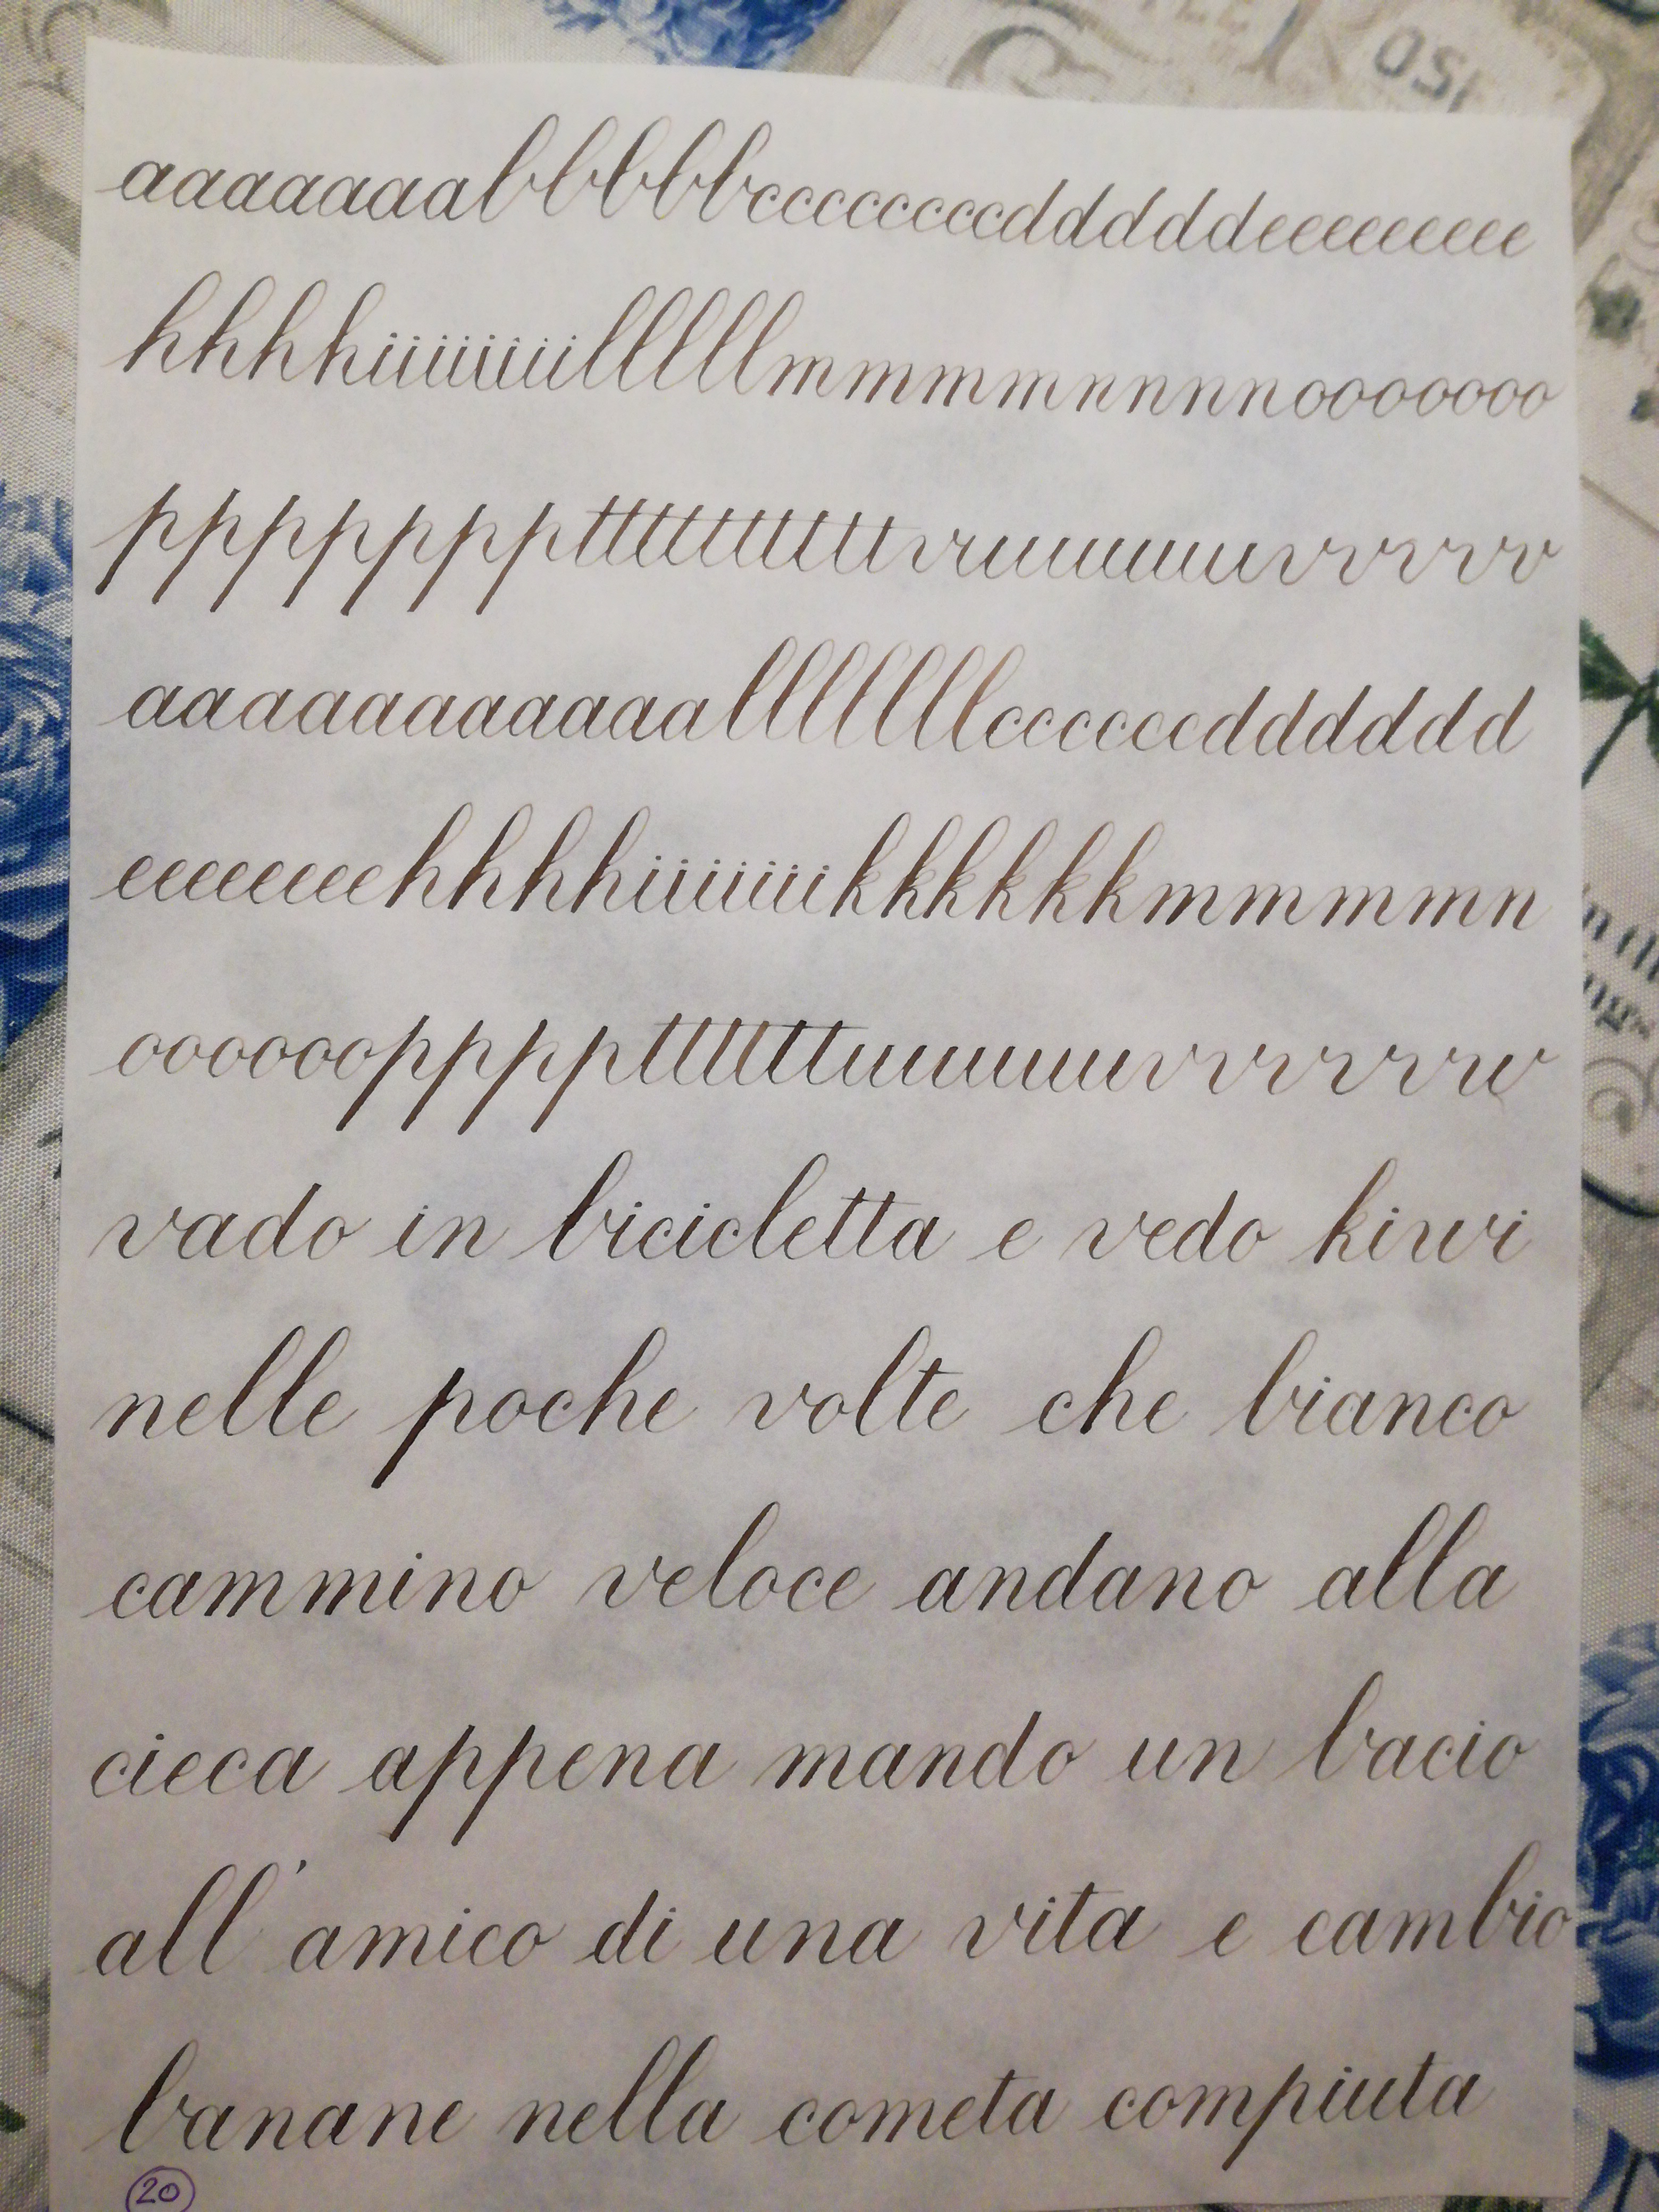 aaaaaaaabbbbbcccccccccdddddeeeeeeeee
hhhhiiiiiiiilllllmmmmnnnnooooooo
pppppppptttttttttttvruuuuuuvvvvvv
aaaaaaaaaaaallllllllcccccccdddddd
eeeeeeeeehhhhiiiiiiikkkkkkmmmmn
oooooopppppttttttttuuuuuuvvvvvvw
vado in bicicletta e vedo kiwi
nelle poche volte che bianco
cammino veloce andano alla
cieca appena mando un bacio
all'amico di una vita e cambio
banane nella cometa compiuta
20